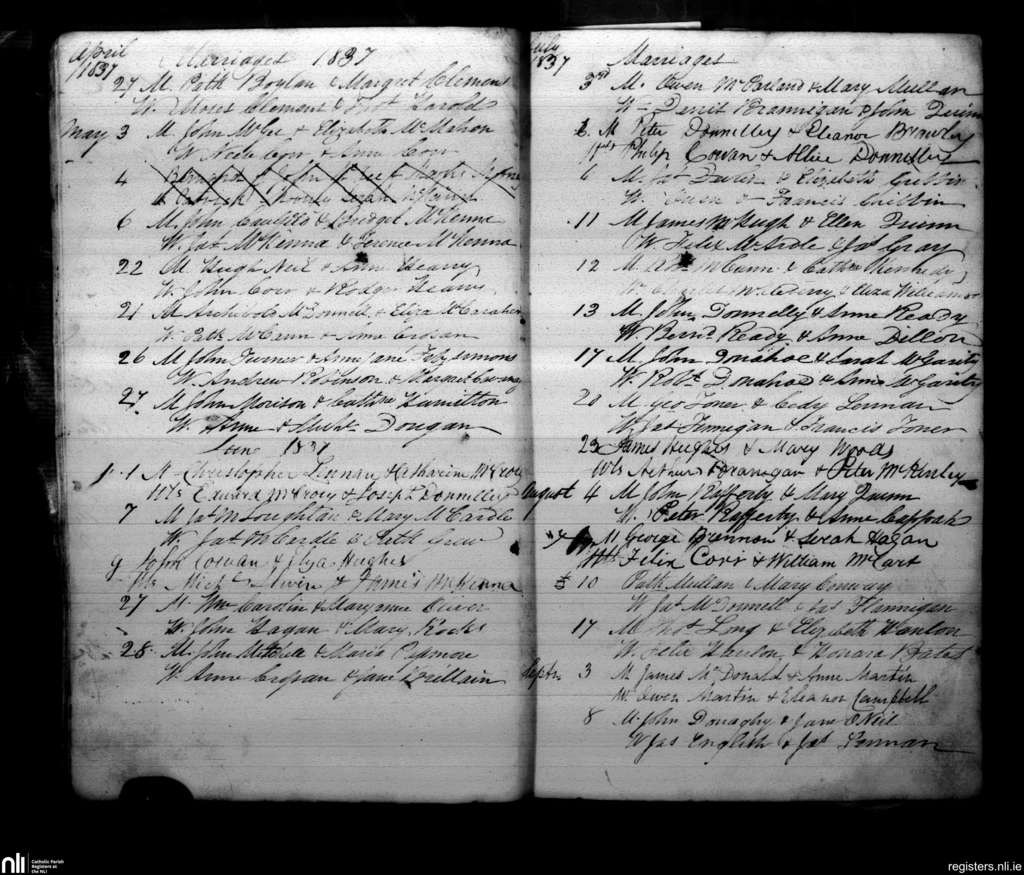 April 1837
Marriages 1837
27 M. Patk Boylan & Margret Clemens
W. Moses Clemens & Thos Harold
May 3 M John McGee & Elizabeth McMahon
W Neele Corr & Anne Corr
4
6 M. John Caulfild & Bridget McKenna
W. Jas McKenna & Terence McKenna
22 M Hugh Neil & Anne Heany
W. John Corr & Rodger Heany
21 M Archibold McDonnell & Eliza McCaraher
W. Patk McCann & Anne Crosan
26 M John Turner & Anne Jane Fitzsimons
W. Andrew Robinson & Margaret
27 M John Morison & Cathne Hamilton
W. Anne & Dougan
June 1837
1 M Christopher & Catharine McCroey
Wts Edward McCroey & Joseph Donnelly
7 M Jas McLoughlan & Mary McCardle
W Jas McCardle & Patk Grew
9 John Cowan & Eliza Hughes
Wts Michl & James McKenna
27 M. Wm Carolin & Maryanne
W. John Hagan & Mary Rocks
28 M. John Mitchell & Maria
W. Anne Crosan & Jane Brittain
July 1837
Marriages
3rd M. Owen McParland & Mary Mullan
W. Brannigan & John Quinn
6. M Peter Donnelley & Eleanor
Wts Philip Cowan & Allice Donnelly
6 M. Jas & Elizabeth Gribbin
W. & Francis Gribbin
11 M James McHugh & Ellen Quinn
W Felix McArdle & Jas Gray
12 M. McCann & Cathne Kennedy
W. Charles & Eliza Williamson
13 M John Donnelly & Anne Ready
W. Bernd Ready & Anne Dillon
17 M John Donahoe & Sarah McGarity
W. Robt Donahoe & Anne McGarity
20 M Geo Toner & Cecly Lennan
W. Jas Finnegan & Francis Toner
23 James Hughes & Mary Woods
Wts Arthur Branagan & Peter McKinley
August 4 M John Rafferty & Mary Quinn
W. Peter Rafferty & Anne Cappagh
11 George Brennon & Sereah Hagan
Wts Felix Corr & William McCart
10 Patk Mullan & Mary Conway
W Jas McDonnell & Jas Flannigan
17 M Thos Long & Elizabeth Hanlon
W. Felix Hanlon & Honora
Septr. 3 M James McDonald & Anne Martin
W. Owen Martin & Eleanor Campbell
8 M. John Donaghy & Jane ONeil
W Jas English & Jas Lennan
nli
Catholic Parish
Registers at
the NLI
registers.nli.ie